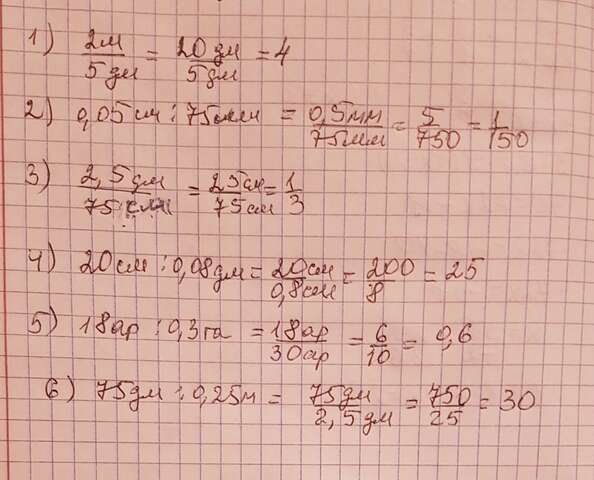 1) 2м/5дм = 20дм/5дм = 4
2) 0,05см : 75мм = 0,5мм/75мм = 5/750 = 1/150
3) 2,5дм/75см = 25см/75см = 1/3
4) 20см : 0,08дм = 20см/0,8см = 200/8 = 25
5) 18ар : 0,3га = 18ар/30ар = 6/10 = 0,6
6) 75дм : 0,25м = 75дм/2,5дм = 750/25 = 30